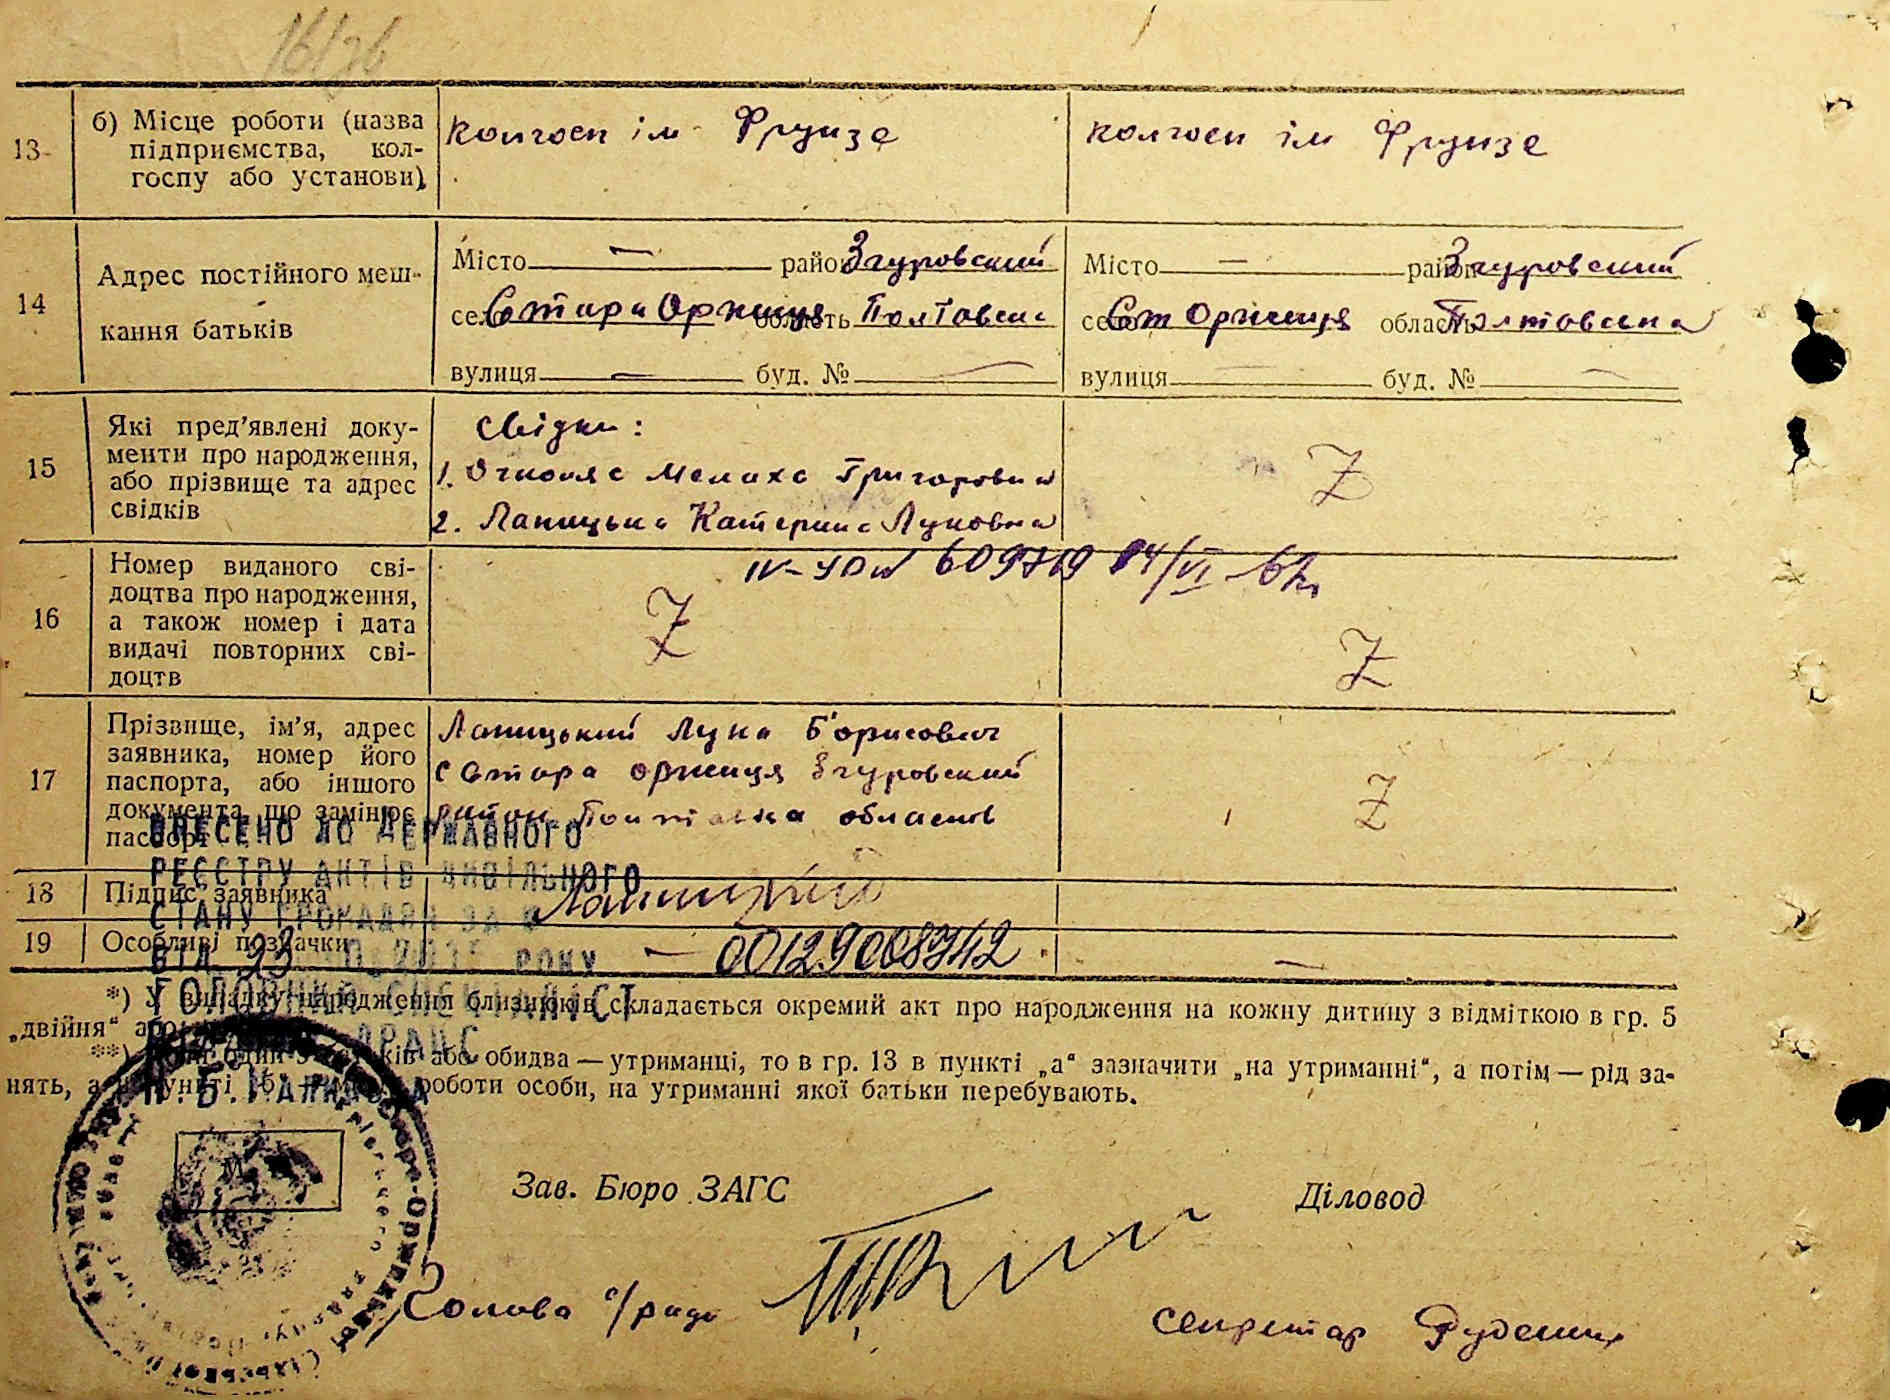 16/26
13 б) Місце роботи (назва підприємства, колгоспу або установи)
колгосп ім Фрунзе
колгосп ім Фрунзе
14 Адрес постійного мешкання батьків
Місто — район Згуровский
село Стара Оржиця область Полтавська
вулиця — буд. № —
Місто — район Згуровский
село Ст Оржиця область Полтавська
вулиця — буд. № —
15 Які пред'явлені документи про народження, або прізвище та адрес свідків
Свідки:
1. Мелаха Григоровна
2. Лапицька Катерина Луковна
Z
16 Номер виданого свідоцтва про народження, а також номер і дата видачі повторних свідоцтв
Z
Z
17 Прізвище, ім'я, адрес заявника, номер його паспорта, або іншого документа, що замінює паспорт
Лапицький Лука Борисович
с Стара Оржиця Згуровский
район Полтавська область
Z
18 Підпис заявника
19 Особливі позначки
— 00129008942
—
ВНЕСЕНО ДО ДЕРЖАВНОГО
РЕЄСТРУ АКТІВ ЦИВІЛЬНОГО
СТАНУ ГРОМАДЯН ЗА №
ВІД 23 РОКУ
ГОЛОВНИЙ СПЕЦІАЛІСТ
ДРАЦС
*) У випадку народження близнюків складається окремий акт про народження на кожну дитину з відміткою в гр. 5
„двійня“ або
**) один з батьків або обидва — утриманці, то в гр. 13 в пункті „а“ зазначити „на утриманні“, а потім — рід за-
нять, а в пункті „б“ роботи особи, на утриманні якої батьки перебувають.
М
Зав. Бюро ЗАГС
Діловод
Голова с/ради
секретар